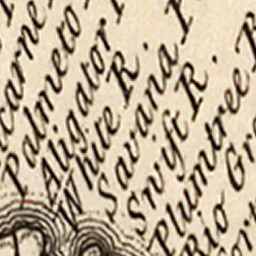 Palmeto
Aligator
White R.
Savana
Swift R.
Plumtree
Rio